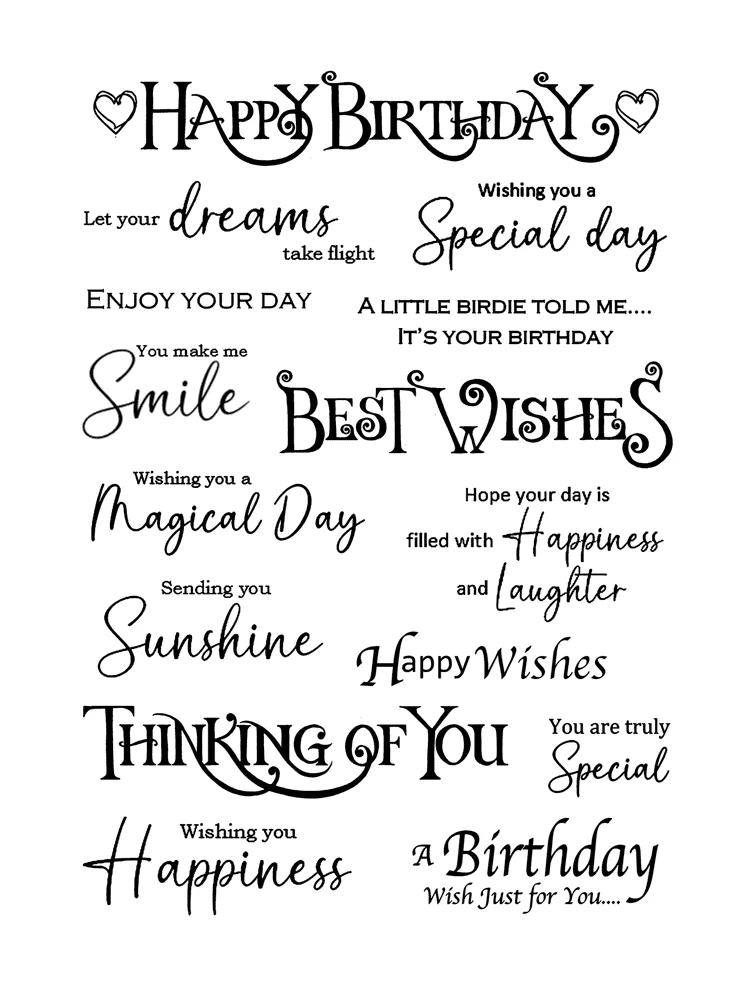 Happy Birthday
Let your dreams
take flight
Wishing you a
Special day
Enjoy your day
A little birdie told me....
It's your birthday
You make me
Smile
Best Wishes
Wishing you a
Magical Day
Hope your day is
filled with Happiness
and Laughter
Sending you
Sunshine
Happy Wishes
Thinking of You
You are truly
Special
Wishing you
Happiness
A Birthday
Wish Just for You....